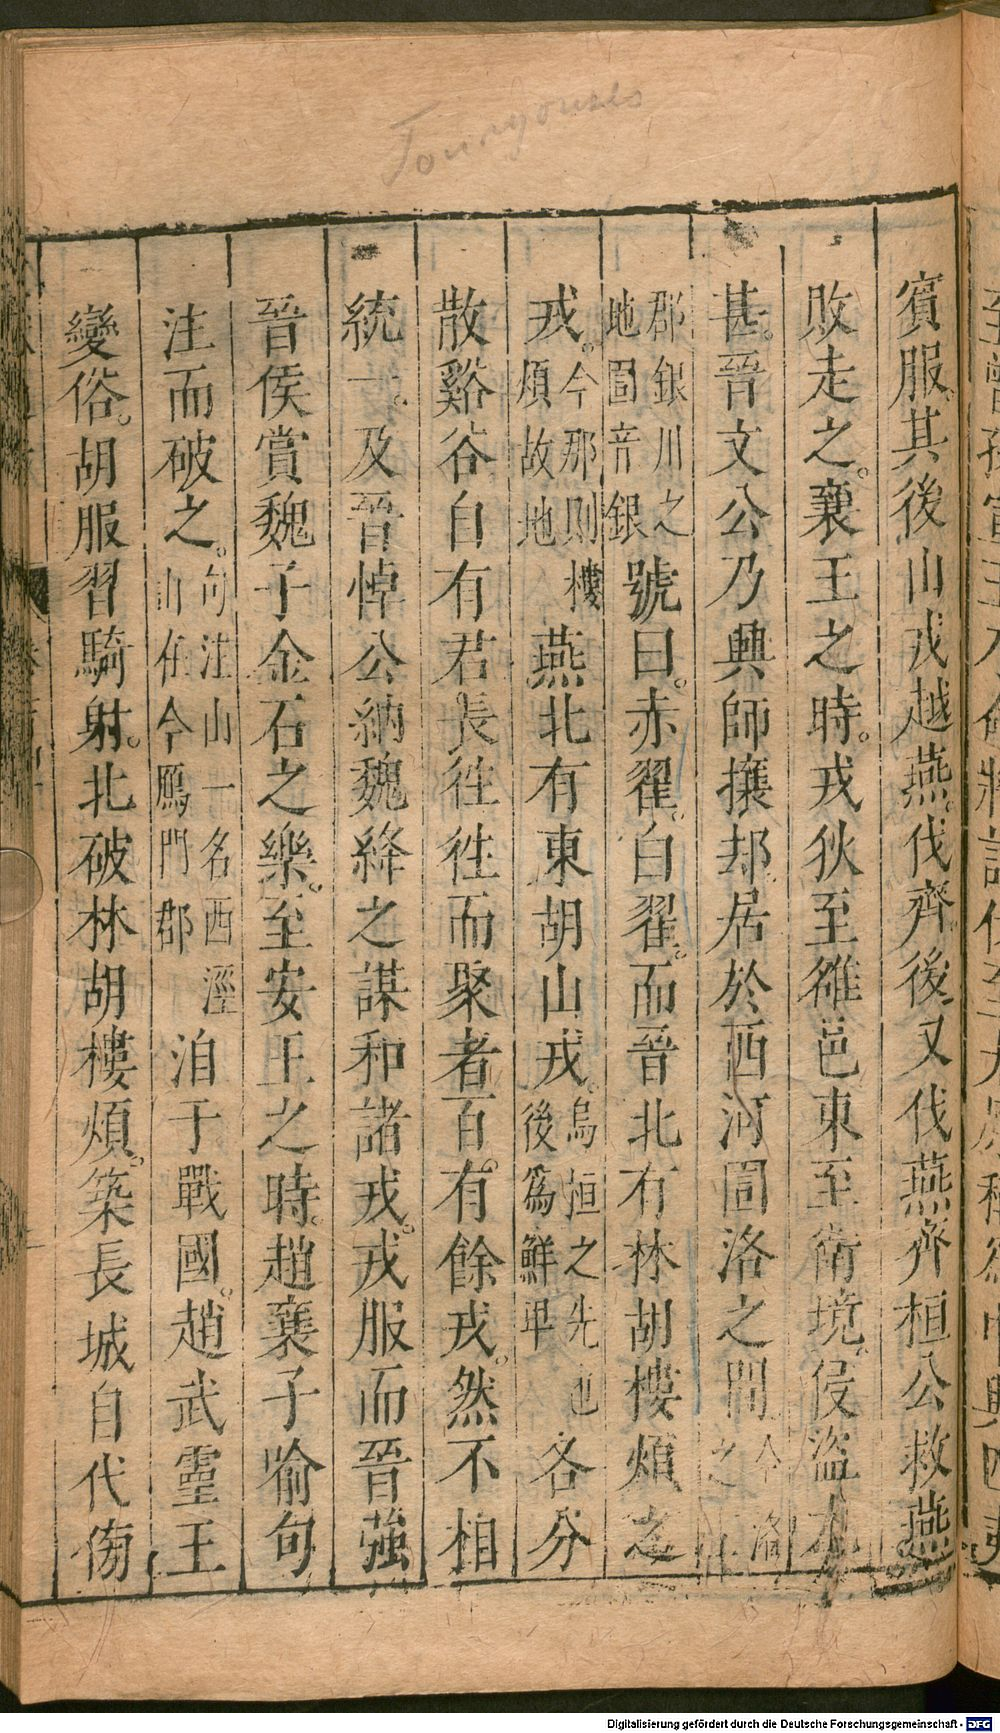 賓服。其後山戎越燕。伐齊。後又伐燕齊桓公救燕
敗走之。襄王之時。戎狄至雒邑東至衛境。侵盜尤
甚。晉文公乃興師攘却。居於西河圁洛之間今洛之
郡銀川之地圁音銀號曰。赤翟。白翟。而晉北有林胡樓煩之
戎。今那則樓煩故地燕北有東胡山戎。烏桓之先也後爲鮮卑各分
散谿谷自有君長徃徃而聚者百。有餘戎。然不相
統一。及晉悼公納魏絳之謀和諸戎。戎服而晉強
晉侯賞魏子金石之樂。至安王之時。趙襄子喻句
注而破之。句注山一名西涇山在今鴈門郡洎于戰國。趙武靈王
變俗。胡服習騎射。北破林胡樓煩。築長城自代傍
Digitalisierung gefördert durch die Deutsche Forschungsgemeinschaft - DFG